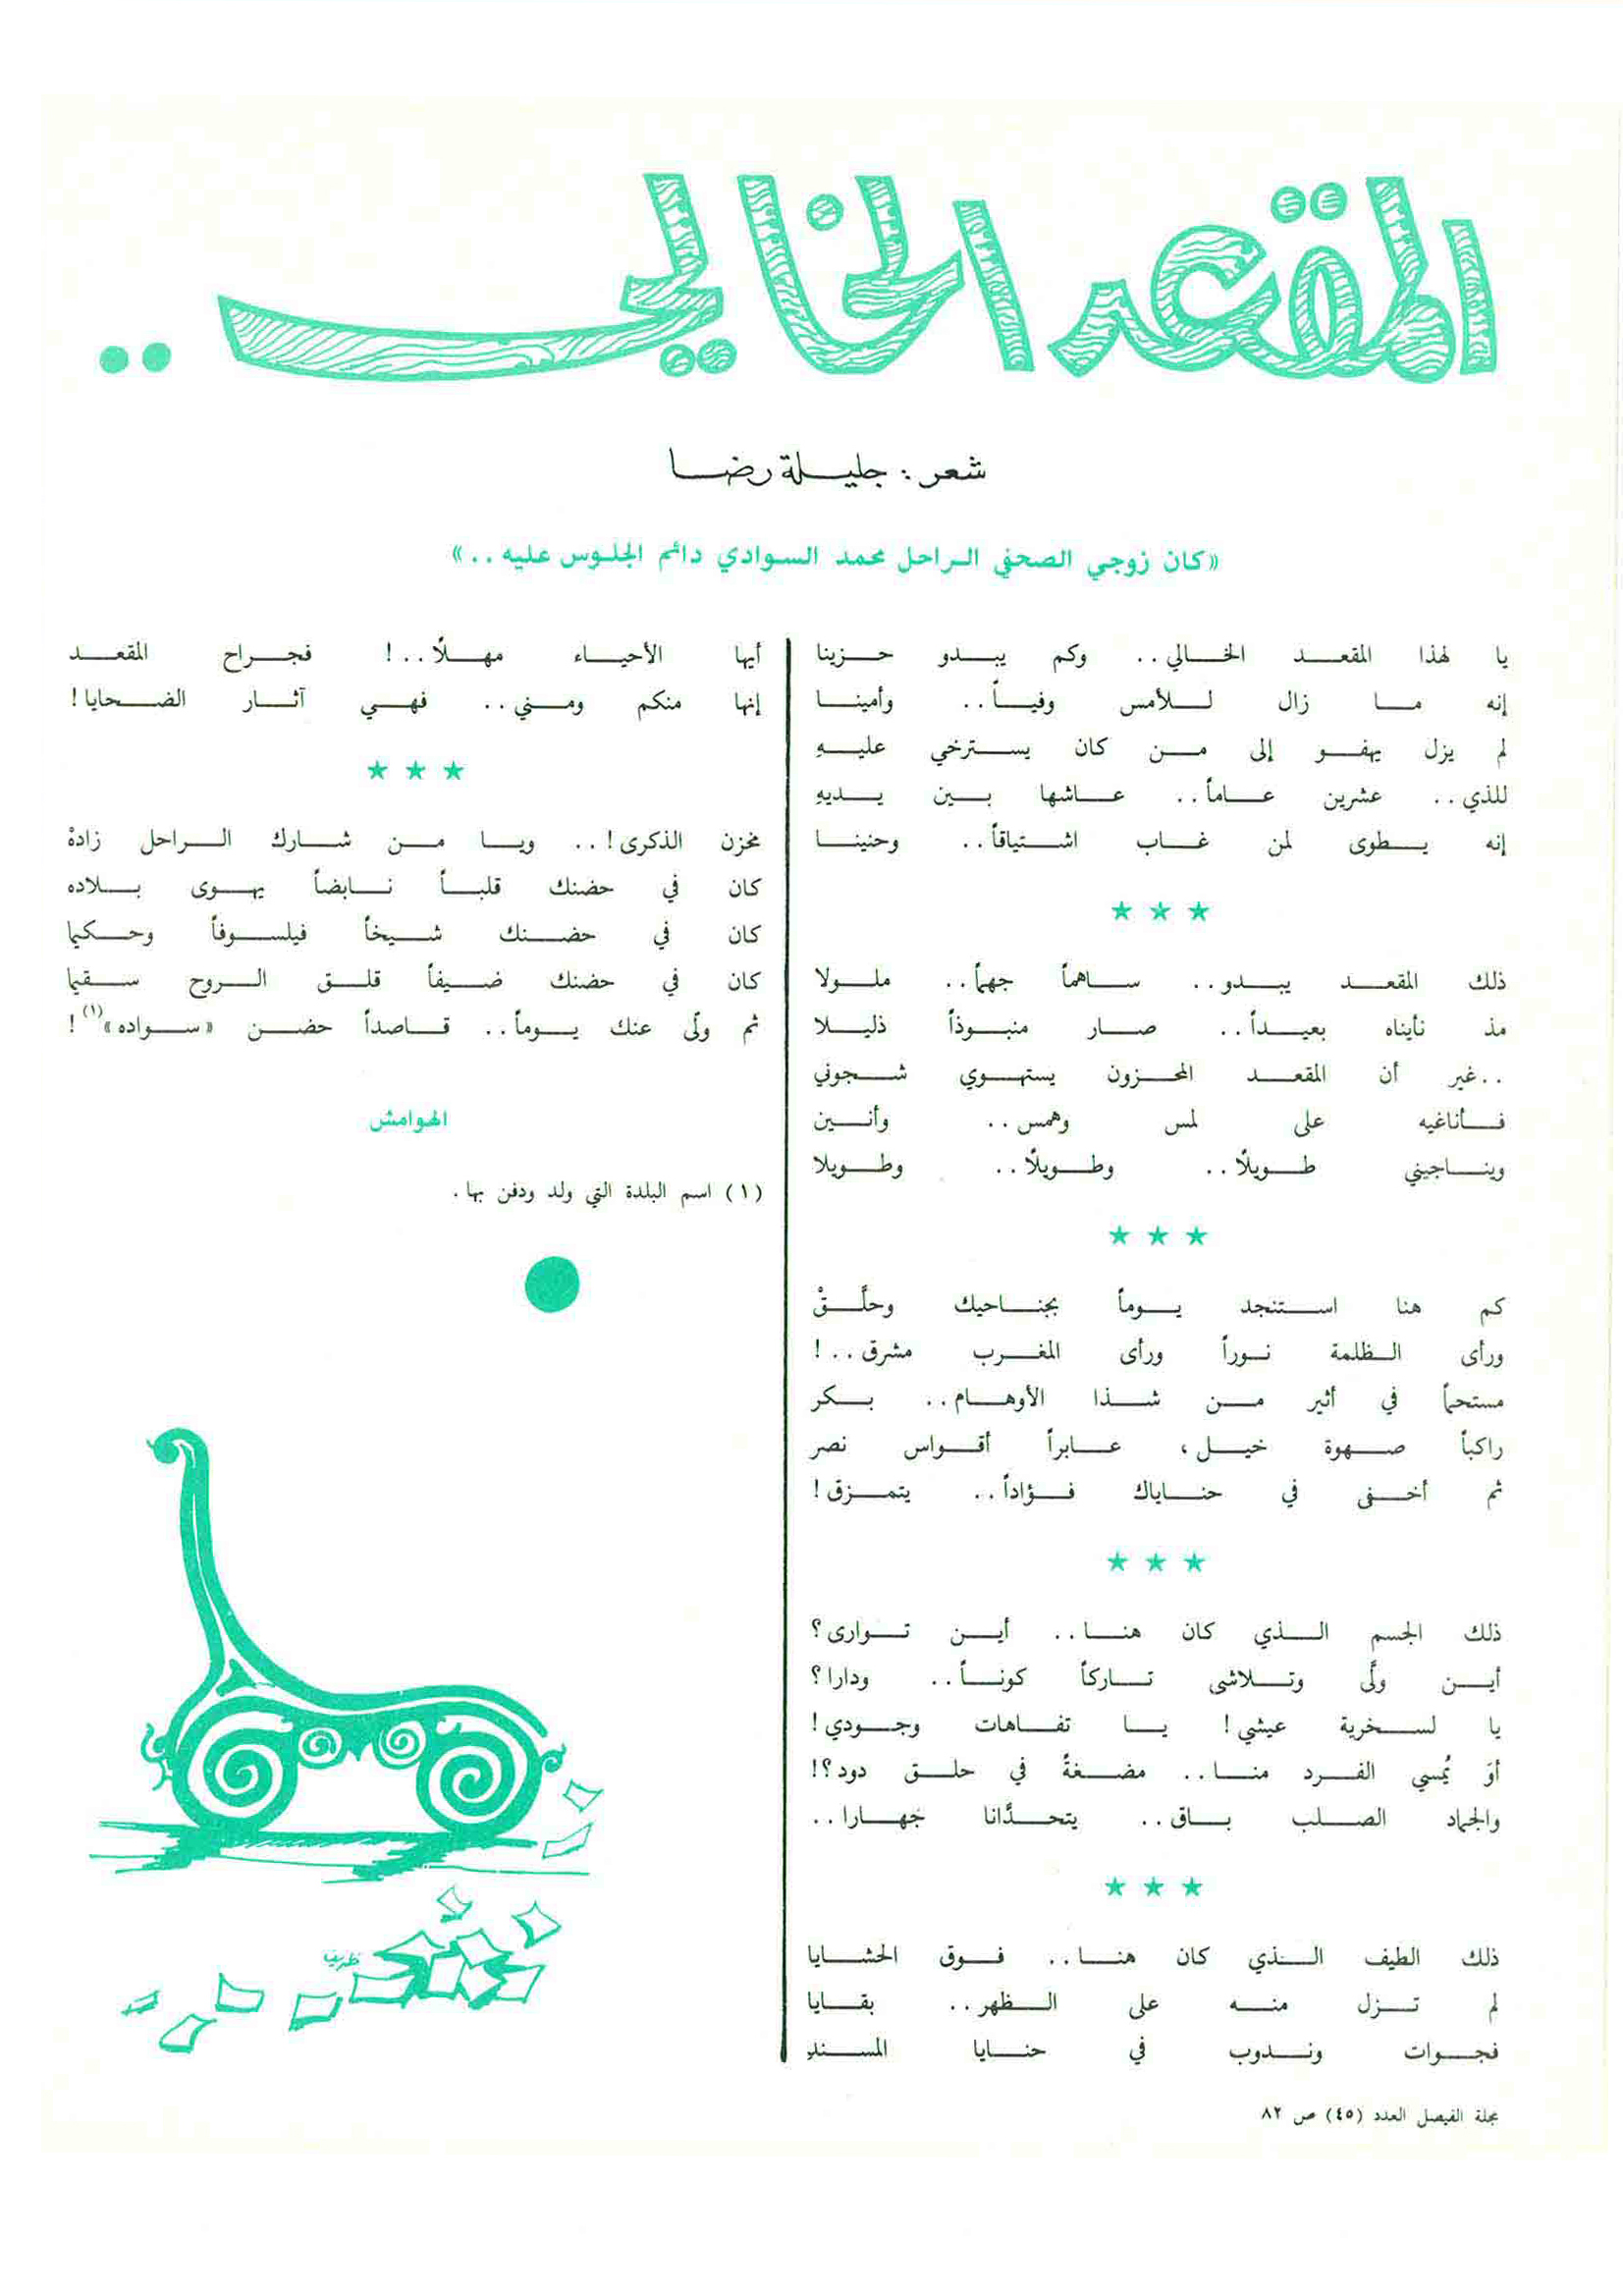 المقعد الخالي ..
شعر : جليلة رضا
«كان زوجي الصحفي الراحل محمد السوادي دائم الجلوس عليه ..»
يا لهذا المقعد الخالي .. وكم يبدو حزينا
إنه ما زال للأمس وفياً .. وأمينا
لم يزل يهفو إلى من كان يسترخي عليهِ
للذي .. عشرين عاماً .. عاشها بين يديهِ
إنه يطوى لمن غاب اشتياقاً .. وحنينا
★ ★ ★
ذلك المقعد يبدو .. ساهماً جهماً .. ملولا
مذ نأيناه بعيداً .. صار منبوذاً ذليلا
.. غير أن المقعد المحزون يستهوي شجوني
فأناغيه على لمس وهمس .. وأنين
ويناجيني طويلًا .. وطويلًا .. وطويلا
★ ★ ★
كم هنا استنجد يوماً بجناحيك وحلَّقْ
ورأى الظلمة نوراً ورأى المغرب مشرق .. !
مستحماً في أثير من شذا الأوهام .. بكر
راكباً صهوة خيل ، عابراً أقواس نصر
ثم أخفى في حناياك فؤاداً .. يتمزق !
★ ★ ★
ذلك الجسم الذي كان هنا .. أين توارى ؟
أين ولَّى وتلاشى تاركاً كوناً .. ودارا ؟
يا لسخرية عيشي ! يا تفاهات وجودي !
أوَ يُمسي الفرد منا .. مضغةً في حلق دود ؟!
والجماد الصلب باق .. يتحدَّانا جهارا ..
★ ★ ★
ذلك الطيف الذي كان هنا .. فوق الحشايا
لم تزل منه على الظهر .. بقايا
فجوات وندوب في حنايا المسندِ
أيها الأحياء مهلًا .. ! فجراح المقعد
إنها منكم ومني .. فهي آثار الضحايا !
★ ★ ★
مخزن الذكرى ! .. ويا من شارك الراحل زادهْ
كان في حضنك قلباً نابضاً يهوى بلاده
كان في حضنك شيخاً فيلسوفاً وحكيما
كان في حضنك ضيفاً قلق الروح سقيما
ثم ولّى عنك يوماً .. قاصداً حضن «سواده» (١) !
الهوامش
(١) اسم البلدة التي ولد ودفن بها .
ظريف
مجلة الفيصل العدد (٤٥) ص ٨٢